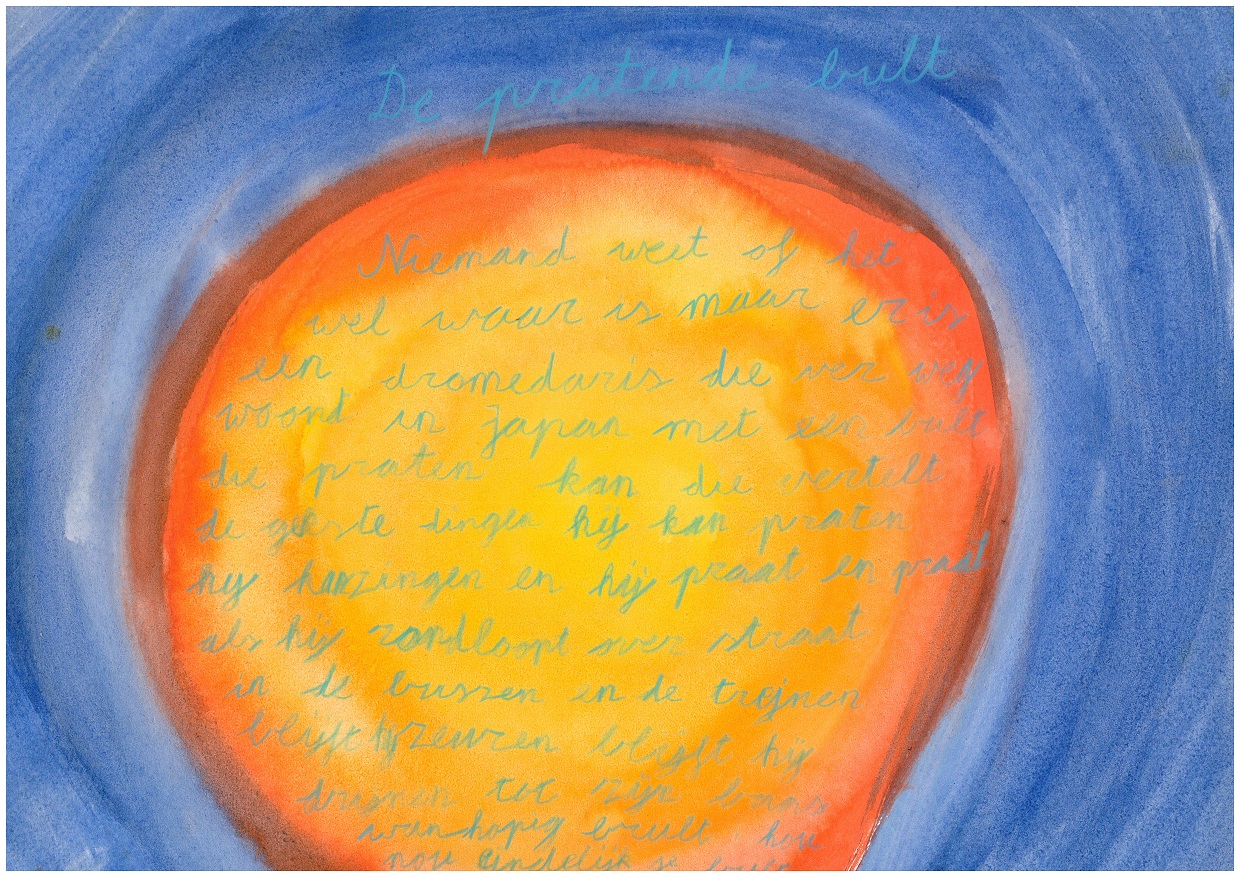 De pratende bult
Niemand weet of het
wel waar is maar er is
een dromedaris die ver weg
woont in Japan met een bult
die praten kan die vertelt
de gekste dingen hij kan praten
hij kan zingen en hij praat en praat
als hij rondloopt over straat
in de bussen in de treinen
blijft hij zeuren blijft hij
dreinen tot zijn baas
wanhopig brult hou
nou eindelijk je